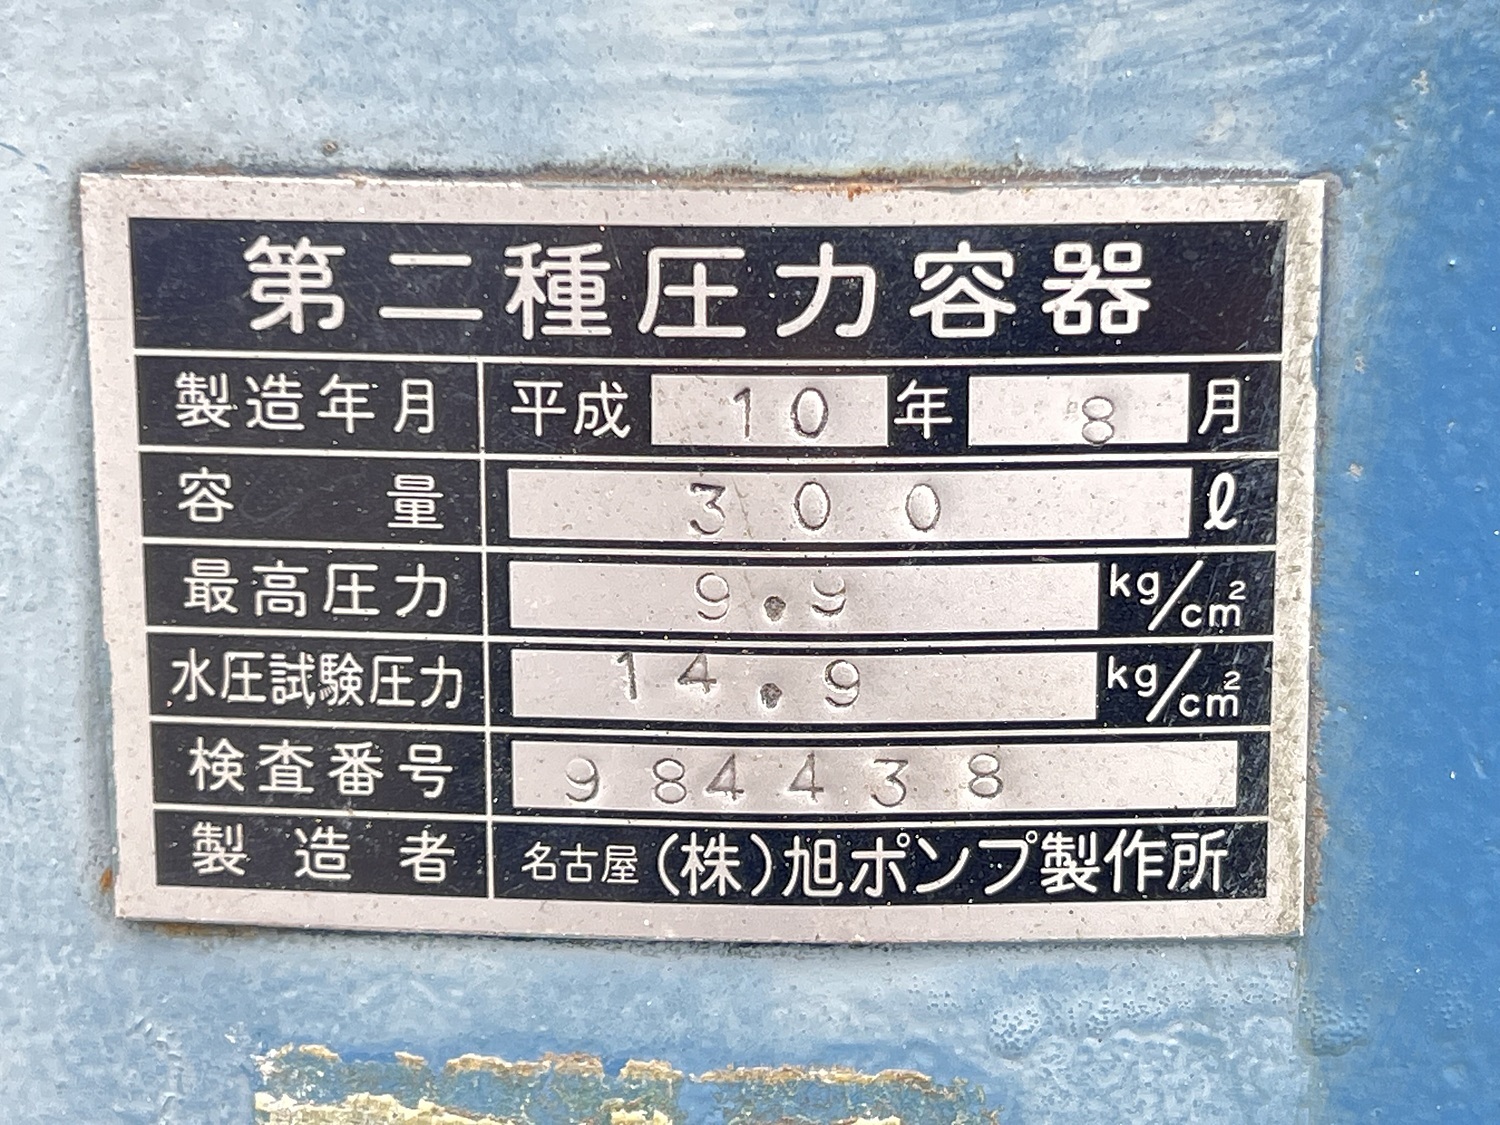 第二種圧力容器
製造年月 平成 10 年 8 月
容量 300 ℓ
最高圧力 9.9 kg/cm²
水圧試験圧力 14.9 kg/cm²
検査番号 984438
製造者 名古屋 (株)旭ポンプ製作所